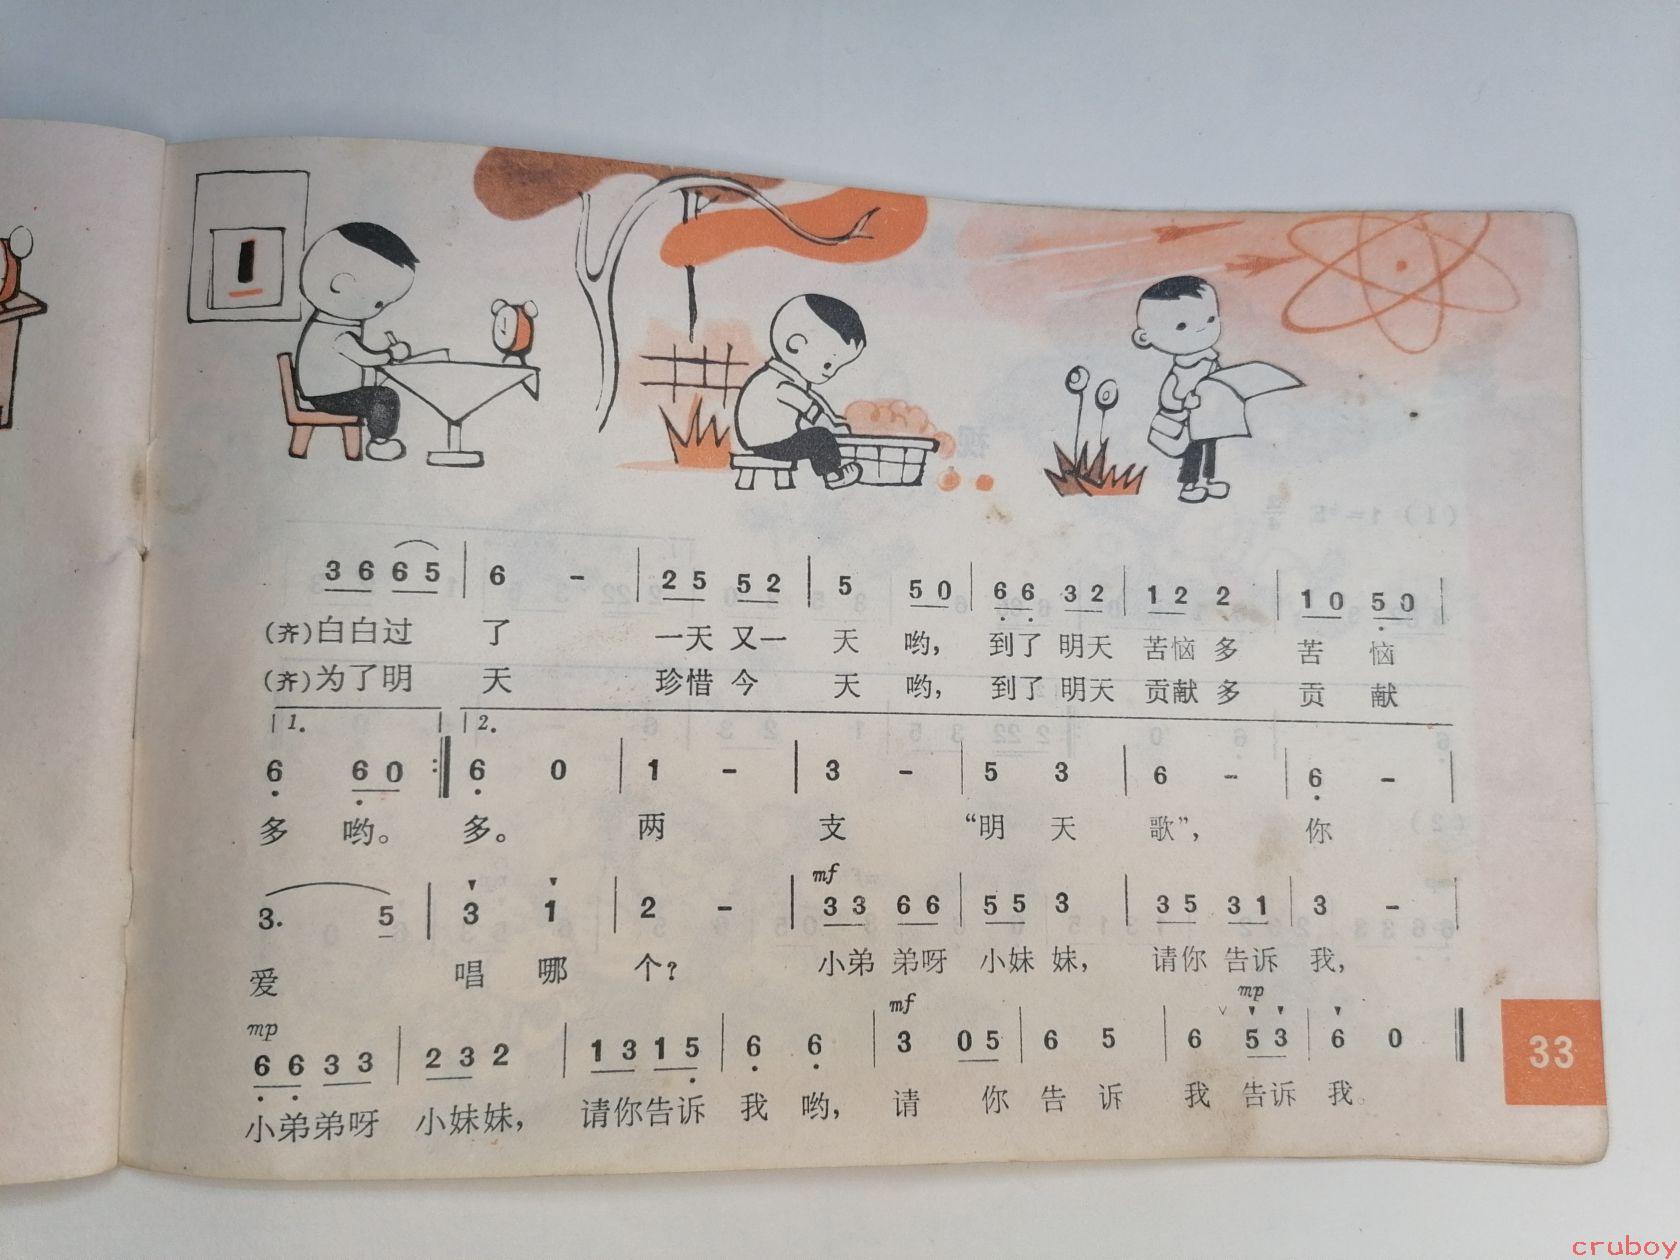 3 6 6 5 | 6 - | 2 5 5 2 | 5 5 0 | 6 6 3 2 | 1 2 2 | 1 0 5 0 |
(齐)白白过 了 一天 又一 天 哟, 到了 明天 苦恼 多 苦 恼
(齐)为了明 天 珍惜 今 天 哟, 到了 明天 贡献 多 贡 献
1. 2.
6 6 0 :| 6 0 | 1 - | 3 - | 5 3 | 6 - | 6 - |
多 哟。 多。 两 支 “明 天 歌”, 你
mf
3. 5 | 3 1 | 2 - | 3 3 6 6 | 5 5 3 | 3 5 3 1 | 3 - |
爱 唱 哪 个? 小弟 弟呀 小妹 妹, 请你 告诉 我,
mp mf mp
6 6 3 3 | 2 3 2 | 1 3 1 5 | 6 6 | 3 0 5 | 6 5 | 6 5 3 | 6 0 ‖
小弟弟呀 小妹妹, 请你告诉 我 哟, 请 你 告 诉 我 告诉 我。
33
cruboy